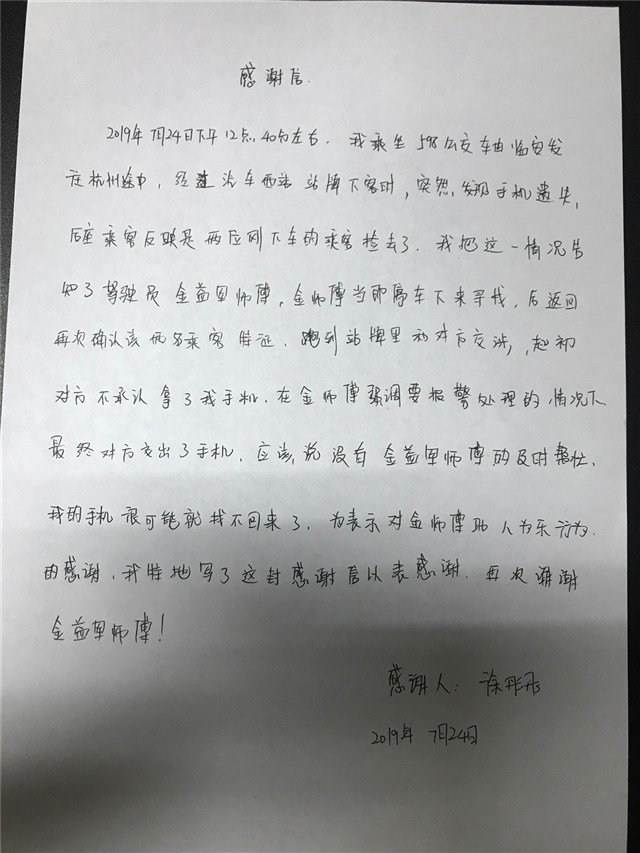 感谢信.
2019年7月24日下午12点40分左右.我乘坐598公交车由临安发
往杭州途中,经过汽车西站站牌下客时,突然发现手机遗失,
后座乘客反映是两应刚下车的乘客捡去了.我把这一情况告
知了驾驶员金益军师傅,金师傅当即停车下来寻找,后返回
再次确认该两名乘客特征.跑到站牌里和对方交涉,起初
对方不承认拿了我手机.在金师傅强调要报警处理的情况下
最终对方交出了手机.应该说没有金益军师傅的及时帮忙.
我的手机很可能就找不回来了.为表示对金师傅助人为乐行为.
的感谢.我特地写了这封感谢信以表感谢.再次谢谢
金益军师傅!
感谢人:涂彤彤
2019年7月24日